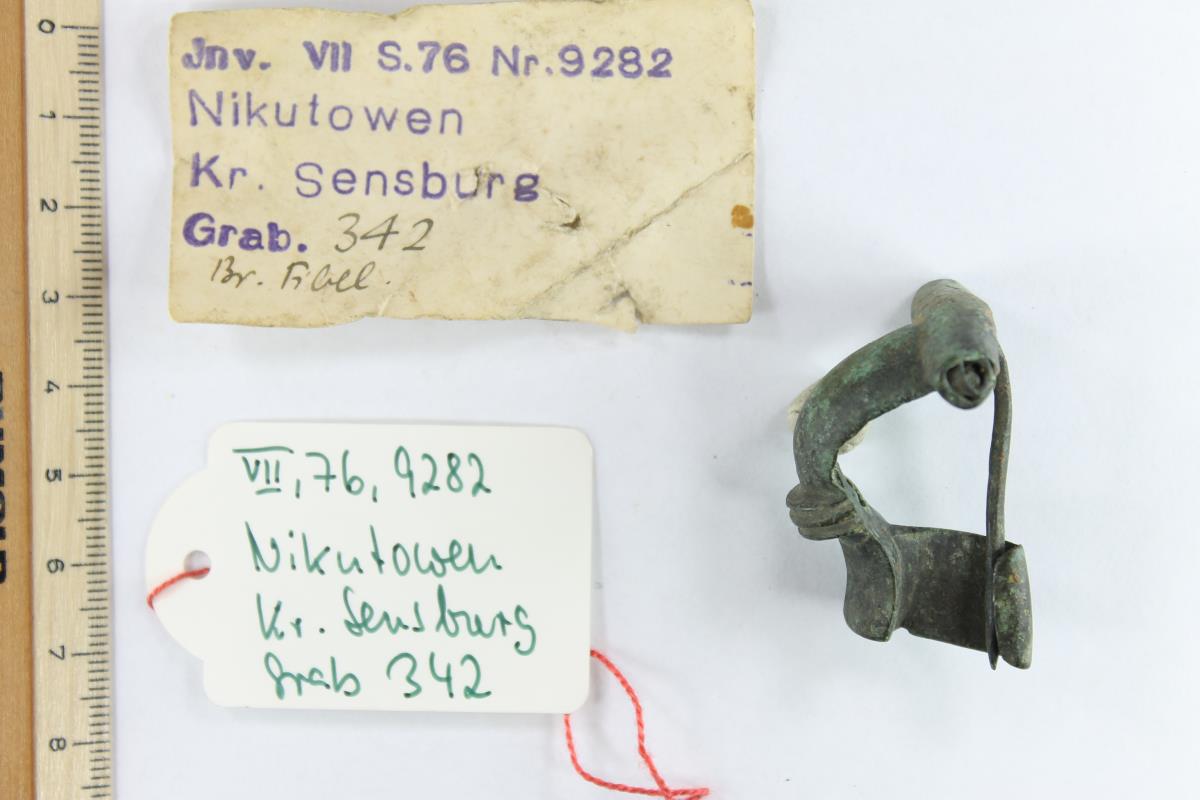 Jnv. VII S.76 Nr.9282
Nikutowen
Kr. Sensburg
Grab. 342
Br. Fibel.
VII, 76, 9282
Nikutowen
Kr. Sensburg
Grab 342
0
1
2
3
4
5
6
7
8